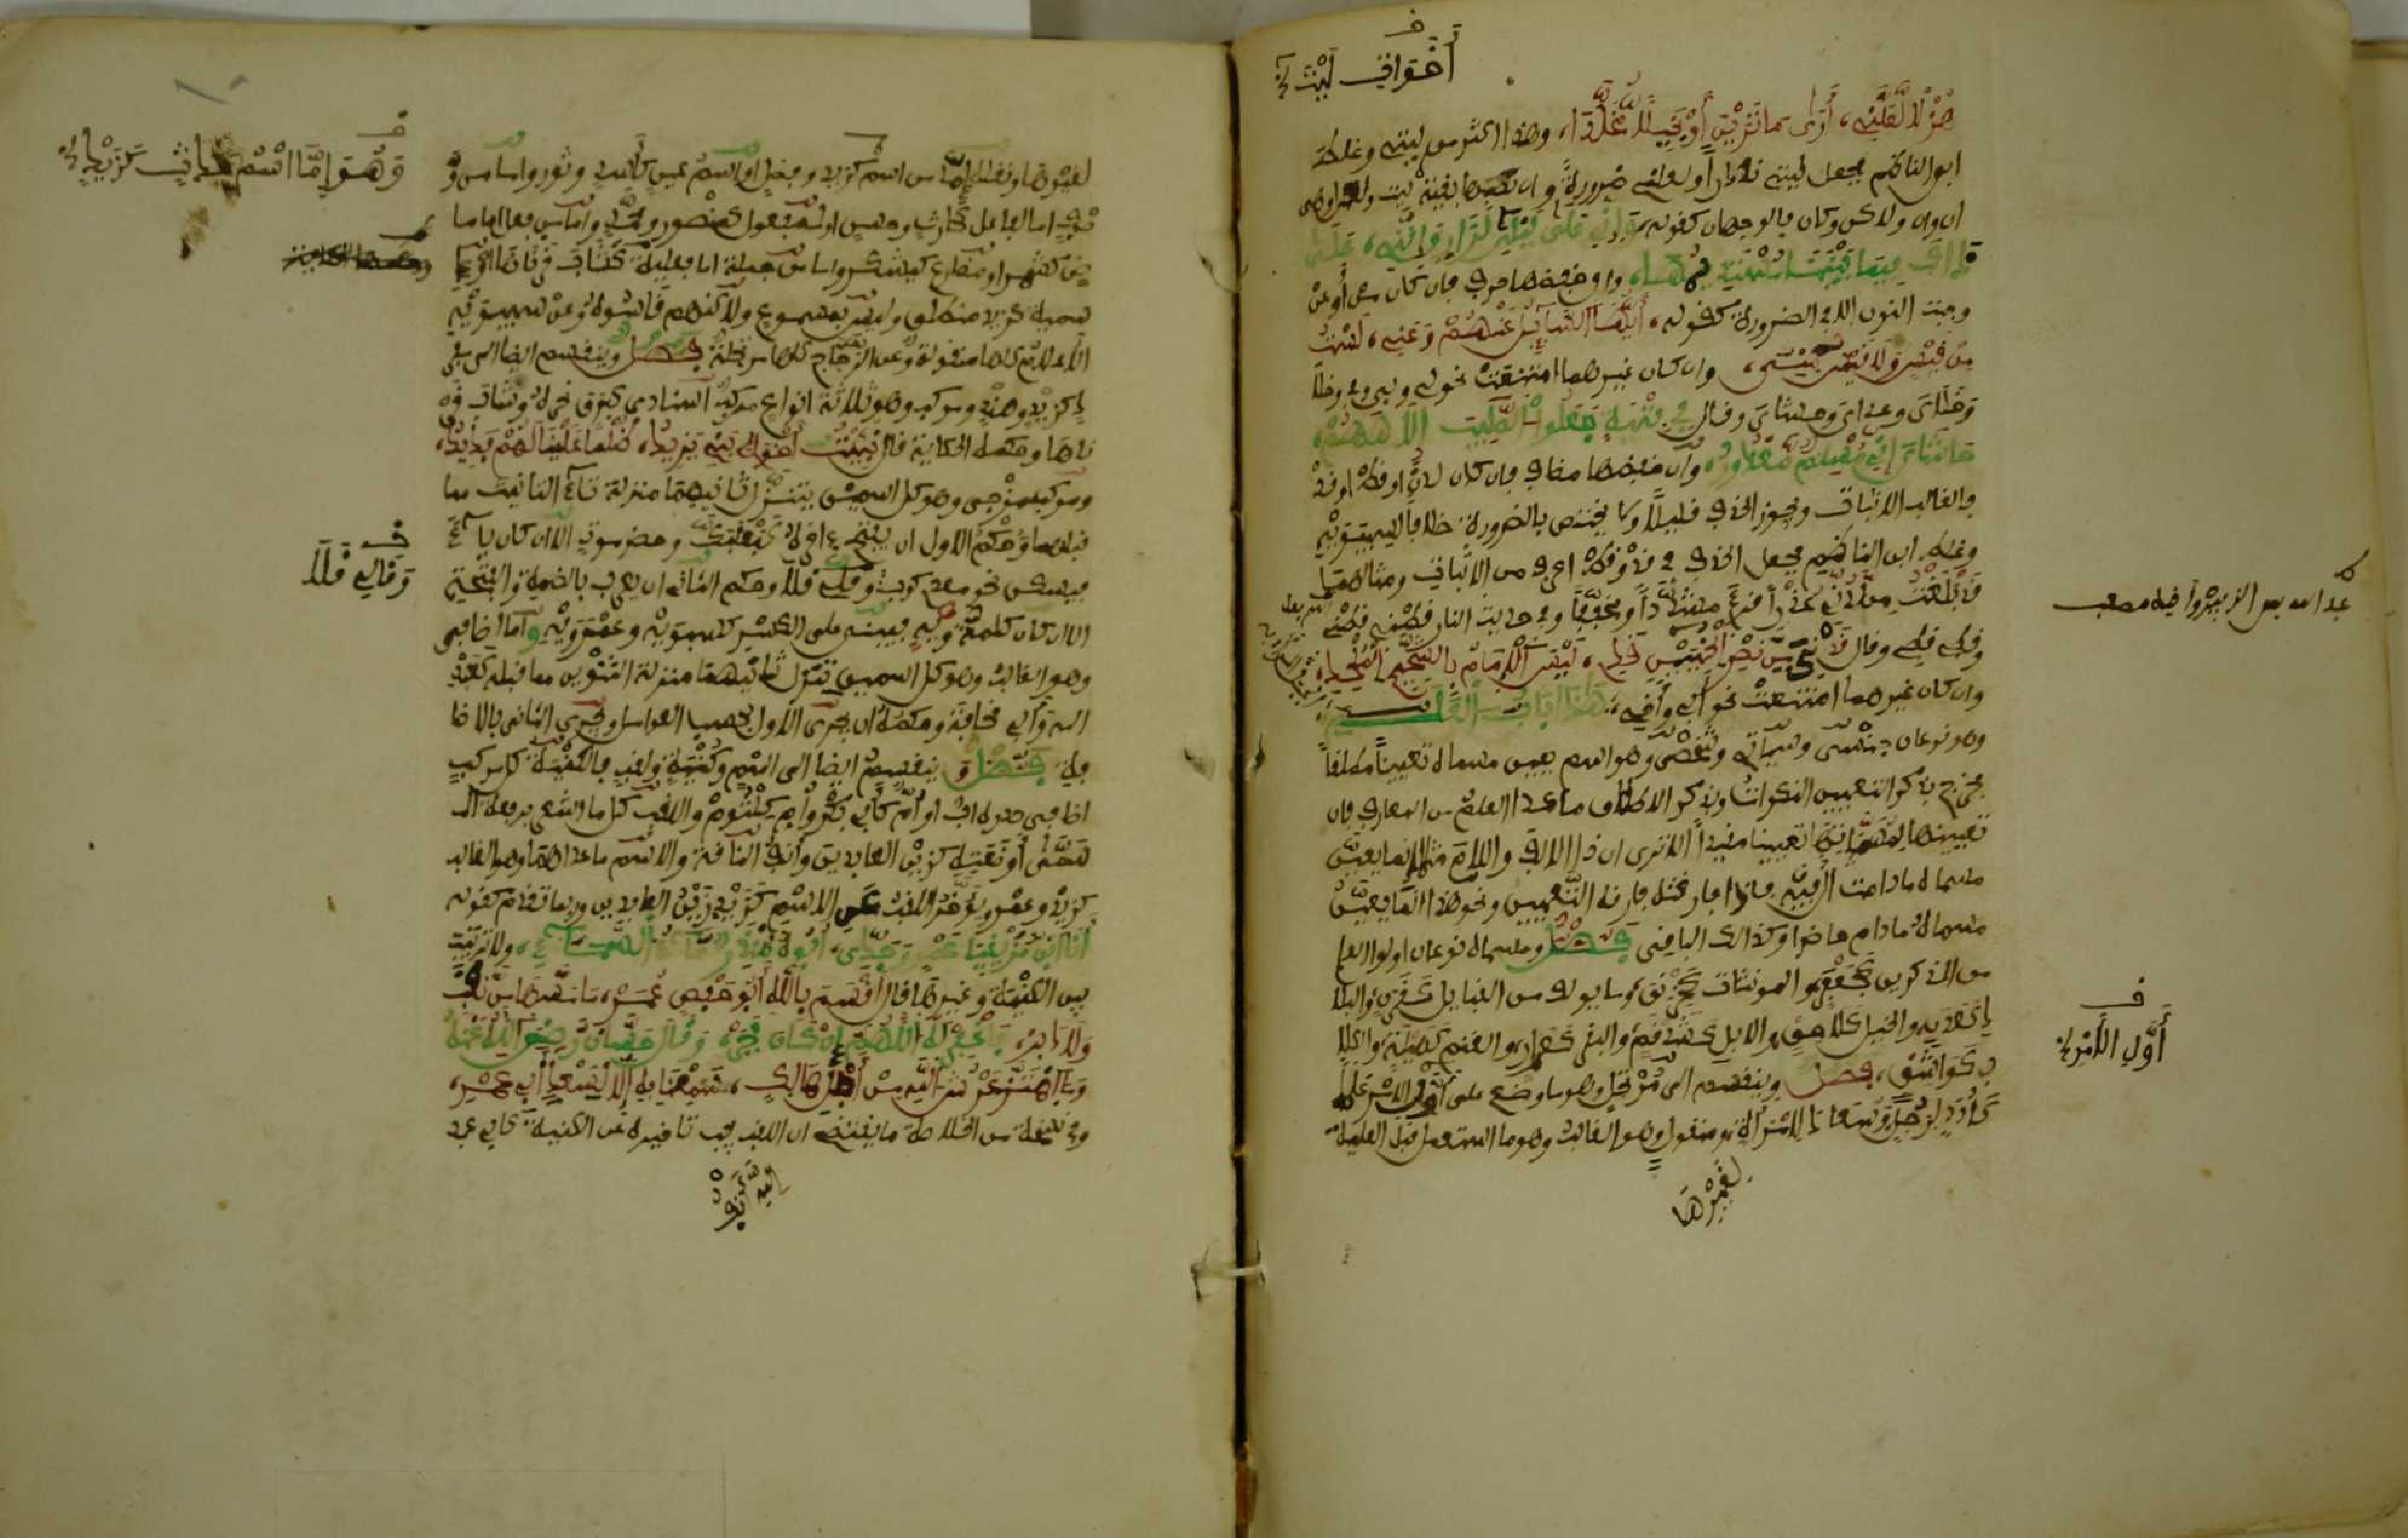 أَخَوَاتِ لَيْتَ
هُزْلًا لَعَلَّنِي، أَرَى مَا تَرَيْنَ أَوْ بَخِيلًا مُخَلَّدَا، وهذا اكثر من ليتي وغلط
ابن الناظم فجعل ليتي نادرا ولعلني ضرورة وان نصبها بقية ليت ولعل وهي
ان وان ولاكن وكان فالوجهان كقوله وَإِنِّي عَلَى لَيْلَى لَزَارٍ وَإِنَّنِي، عَلَى
ذاك فيما بيننا مستديمها، وان خفضها حرف فان كان من أو عن
وجبت النون الا في الضرورة كقوله، أيها السائل عنهم وعني، لست
من قيس ولا قيس مني، وان كان غيرهما امتنعت نحو لي وبي وفي وخلا
وخلاي وعداي وحاشاي وقال في فتية جعلوا الصليب الاههم،
حاشاي إني مسلم معذور، وان خفضها مضاف فان كان لدن او قط او قد
فالغالب الاثبات ويجوز الحذف قليلا ولا يختص بالضرورة خلافا لسيبويه
وغلط ابن الناظم فجعل الحذف في قد وقط اعرف من الاثبات ومثالهما
قد بلغت من لدني عذرا قرئ مشددا ومخففا وفي حديث النار قطني قطني
وقطي قطي وقال قدني من نصر الخبيبين قدي، ليس الامام بالشحيح الملحد،
وان كان غيرهما امتنعت نحو أبي وأخي، هذا باب العلم
وهو نوعان جنسي وسياتي وشخصي وهو اسم يعين مسماه تعيينا مطلقا
فخرج بذكر التعيين النكرات وبذكر الاطلاق ما عدا العلم من المعارف فان
تعيينها لمسمياتها تعيينا مقيدا الا ترى ان ذا الالف واللام مثلا انما يعين
مسماه ما دامت فيه فاذا فارقته فارقه التعيين ونحو هذا انما يعين
مسماه مادام حاضرا وكذالك الباقي فصل ومسماه نوعان اولو العلم
من المذكرين كجعفر والمونثات كخرنق، وما يولف من القبايل كقرن، والبلا
د كعدن، والخيل كلاحق، والابل كشذقم، والبقر كعرار، والغنم كهيلة، والكلا
ب كواشق، فصل وينقسم الى مرتجل وهو ما وضع على أول الامر علما
كأدد لرجل وسعاد لامرأة، ومنقول وهو الغالب وهو ما استعمل قبل العلمية
لِغَيْرِهَا
عبد الله بن الزبير وأخيه مصعب
أَوَّلِ الأَمْرِ
لغيرها ونقله إما من اسم كزيد وفضل او اسم عين كأسد وثور واما من و
صف اما لفاعل كحارث وحسن او لمفعول كمنصور ومحمد واما من فعل اما ما
ض كشمر او مضارع كيشكر واما من جملة اما فعلية كشاب قرناها او ا
سمية كزيد منطلق وليس بمسموع ولاكنهم قاسوه وعن سيبويه
الاعلام كلها منقولة وعن الزجاج كلها مرتجلة فصل وينقسم ايضا الى مفر
د كزيد وهند ومركب وهو ثلاثة انواع مركب اسنادي كبرق نحره وشاب قر
ناها وحكمه الحكاية قال نبئت أخوالي بني يزيد، ظلما علينا لهم فديد،
ومركب مزجي وهو كل اسمين ينزل ثانيهما منزلة تاء التانيث مما
قبلها وحكم الاول ان يفتح ءاخره كبعلبك وحضرموت الا ان كان ياء
فيسكن نحو معدي كرب وقالي قلا وحكم الثاني ان يعرب بالضمة والفتحة
الا ان كان كلمة ويه فيبنى على الكسر كسيبويه وعمرويه واما اضافي
وهو الغالب وهو كل اسمين نزل ثانيهما منزلة التنوين مما قبله كعبد
الله وأبي قحافة وحكمه ان يجرى الاول بحسب العوامل ويجرى الثاني بالاضا
فة فصل وينقسم ايضا الى اسم وكنية ولقب فالكنية كل مركب
اضافي صدره اب او أم كأبي بكر وأم كلثوم واللقب كل ما اشعر برفعة ال
مسمى أو ضعته كزين العابدين وأنف الناقة والاسم ما عداهما وهو الغالب
كزيد وعمرو ويؤخر اللقب عن الاسم كزيد زين العابدين وربما تقدم كقوله
أنا ابن مزيقيا عمرو وجدي، أبوه منذر ماء السماء، ولا ترتيب
بين الكنية وغيرها قال أقسم بالله أبو حفص عمر، ما مسها من نقب
ولا دبر، فاغفر له اللهم إن كان فجر، وقال حسان رضي الله عنه
وما اهتز عرش الله من أجل هالك، سمعنا به إلا لسعد أبي عمرو،
وفي نسخة من الخلاصة ما يقتضي ان اللقب يجب تاخيره عن الكنية كابي عبد
الله أنف
وَهُوَ إِمَّا اسْمُ
وَقَالِي قَلَا